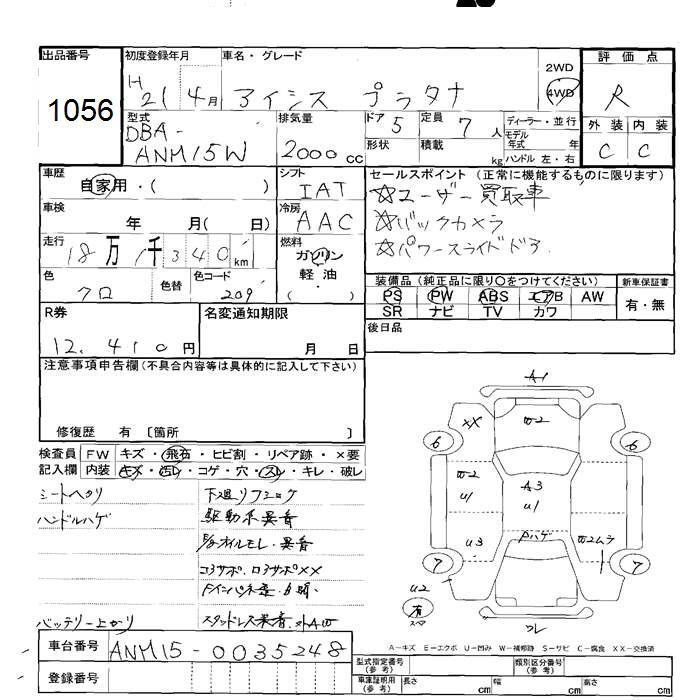 出品番号
1056
初度登録年月
H 21 4月
車名・グレード
アイシス プラタナ
2WD
4WD
評価点
R
外装 内装
C C
型式
DBA-
ANM15W
排気量
2000 cc
ドア 5
形状
定員 7 人
積載 kg
ディーラー・並行
モデル年式 年
ハンドル 左・右
車歴
自家用・( )
シフト
IAT
車検
年 月( 日)
冷房
AAC
走行
18万1千340km
燃料
ガソリン
軽油
( )
色
クロ
色替
色コード
209
セールスポイント (正常に機能するものに限ります)
☆ユーザー買取車
☆バックカメラ
☆パワースライドドア
装備品 (純正品に限り○をつけてください)
PS PW ABS エアB AW
SR ナビ TV カワ
新車保証書
有・無
後日品
R券
12,410円
名変通知期限
月 日
注意事項申告欄 (不具合内容等は具体的に記入して下さい)
修復歴 有 〔箇所 〕
検査員記入欄
FW キズ・飛石・ヒビ割・リペア跡・×要
内装 キズ・汚レ・コゲ・穴・スレ・キレ・破レ
シートヘタリ
ハンドルハゲ
バッテリー上がり
下廻りフミコケ
駆動系異音
E/Gオイルモレ・異音
コアサポ、ロアサポXX
スタッドレス装着、外AW
A1
XX W2
6 6
W2 A3
U1 U1
U3 Pハゲ W2ムラ
7 7
U2
有
スペア
ワレ
A－キズ E－エクボ U－凹み W－補修跡 S－サビ C－腐食 XX－交換済
車台番号
ANM15-0035248
登録番号
型式指定番号(参考)
類別区分番号(参考)
車庫証明用(参考) 長さ cm 幅 cm 高さ cm